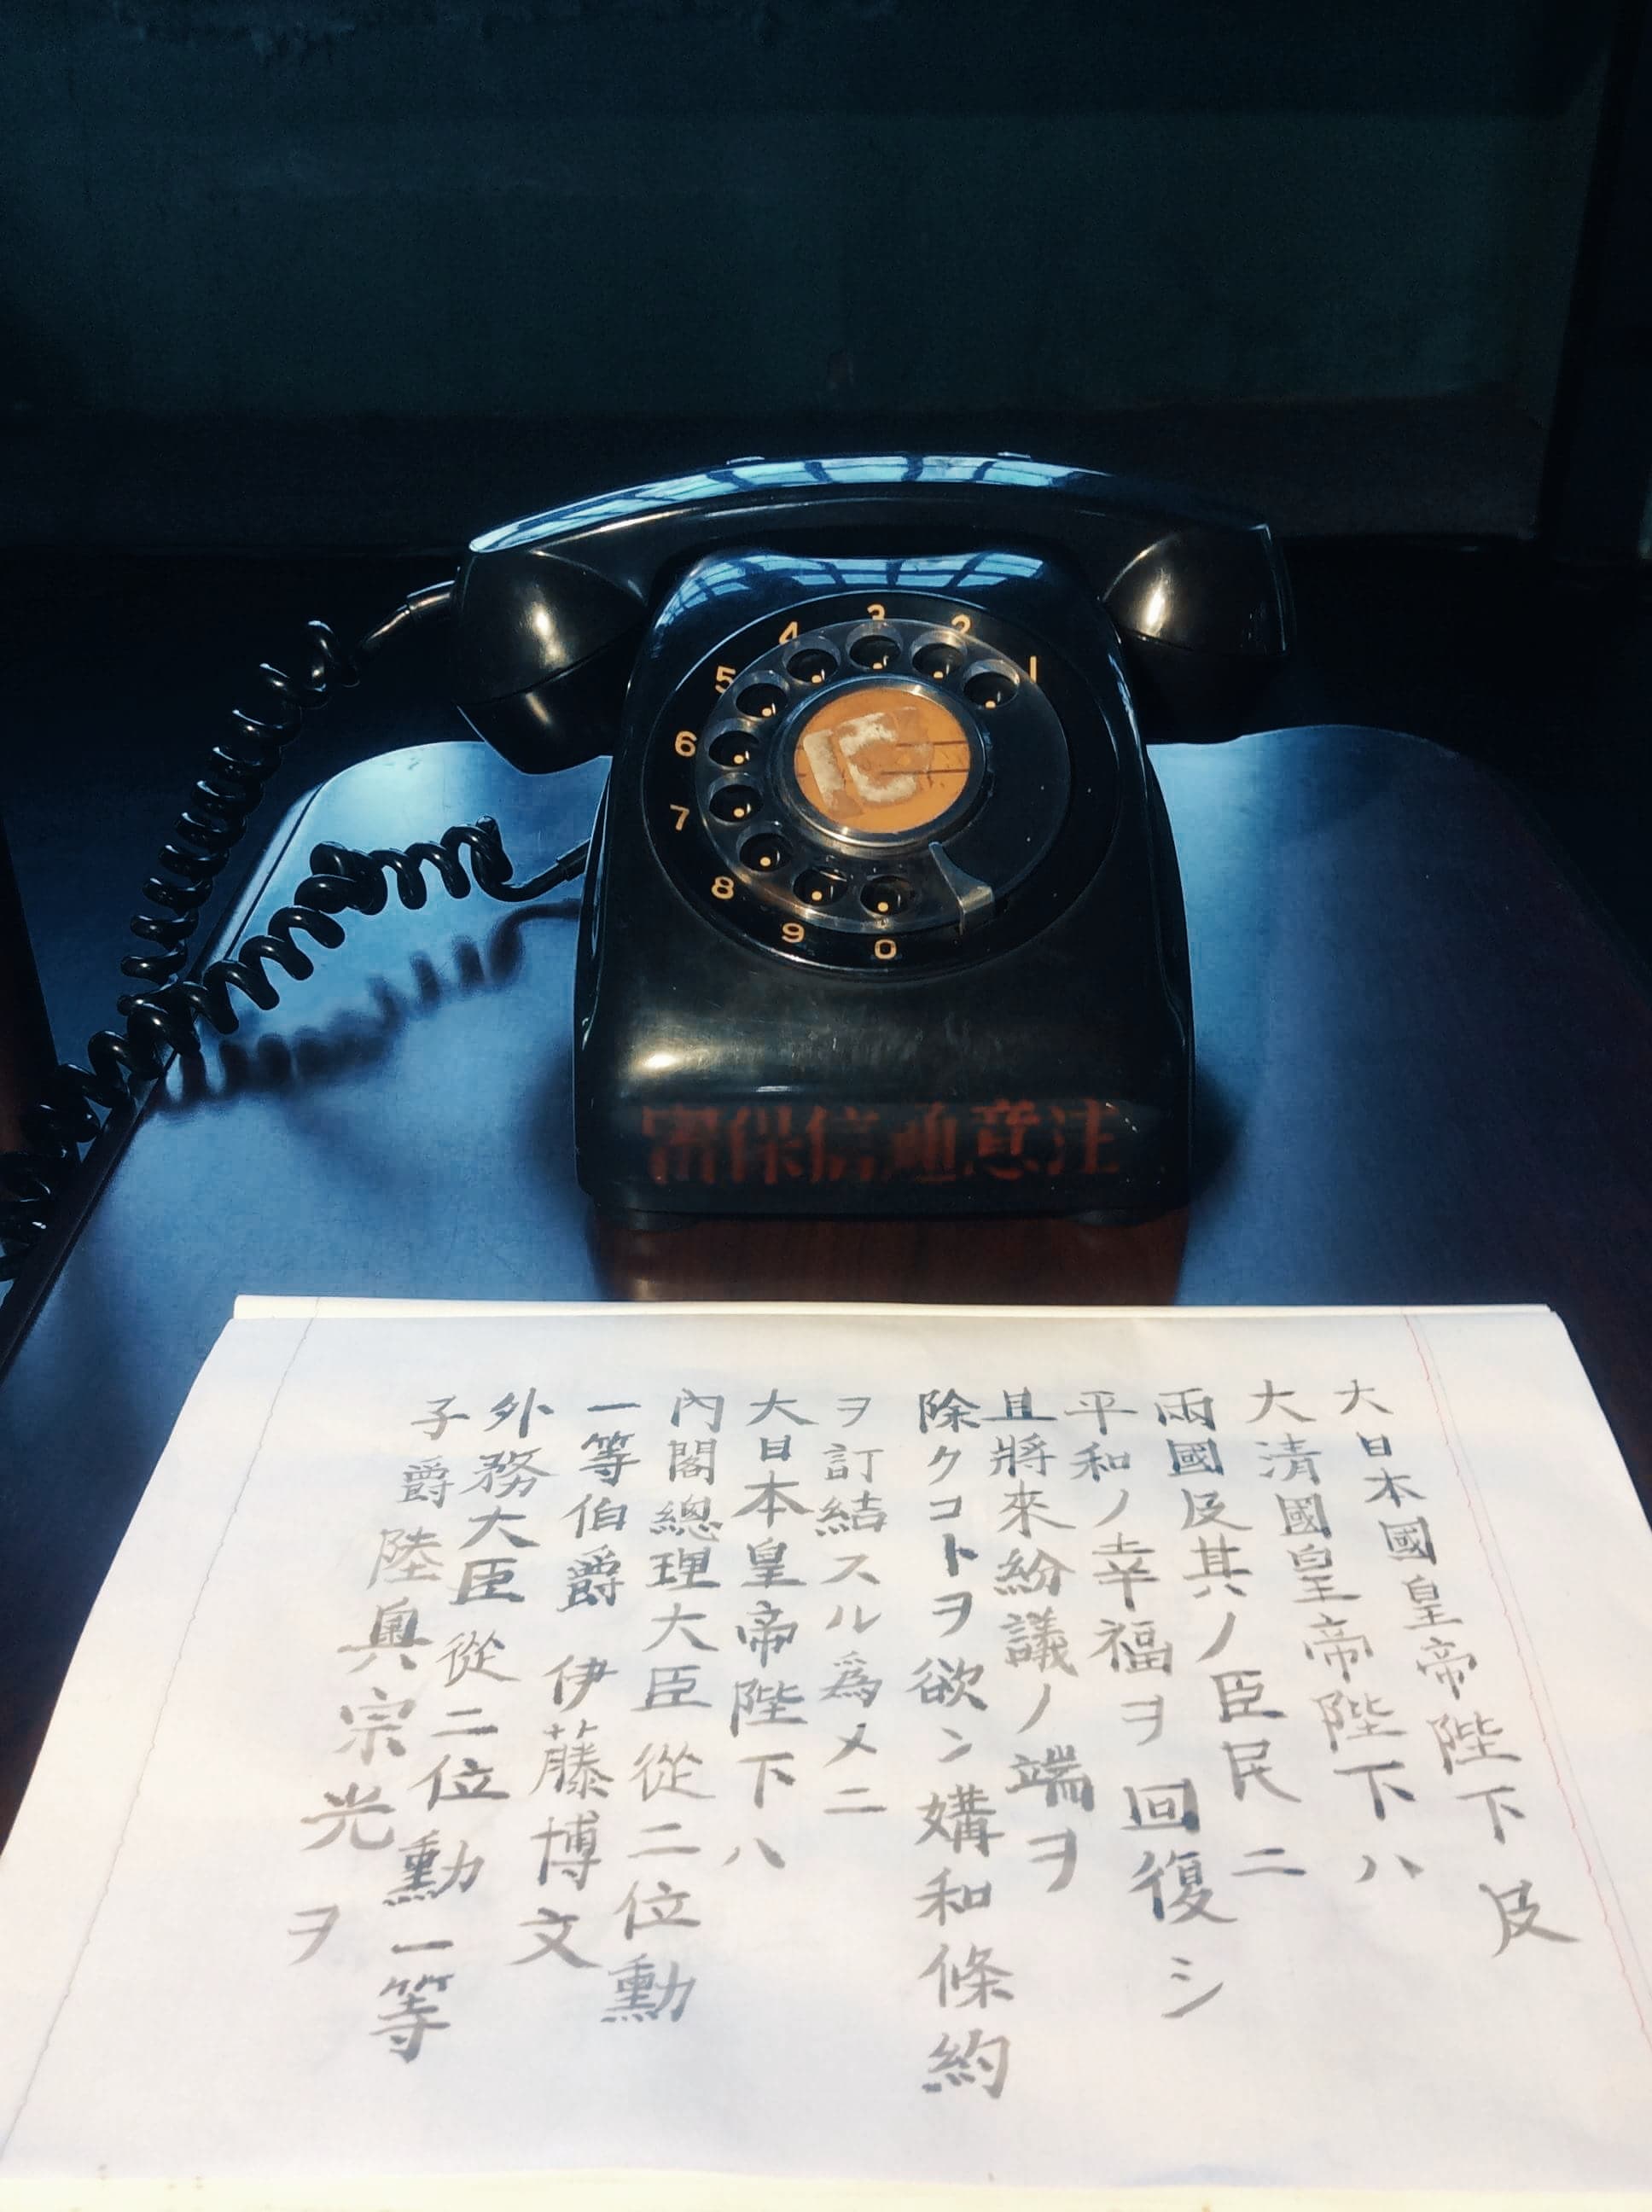 1 2 3 4 5 6 7 8 9 0
注意通信保密
大日本國皇帝陛下及
大清國皇帝陛下ハ
兩國及其ノ臣民ニ
平和ノ幸福ヲ回復シ
且將來紛議ノ端ヲ
除クコトヲ欲シ媾和條約
ヲ訂結スル爲メニ
大日本皇帝陛下ハ
內閣總理大臣從二位勳
一等伯爵 伊藤博文
外務大臣從二位勳一等
子爵陸奧宗光ヲ